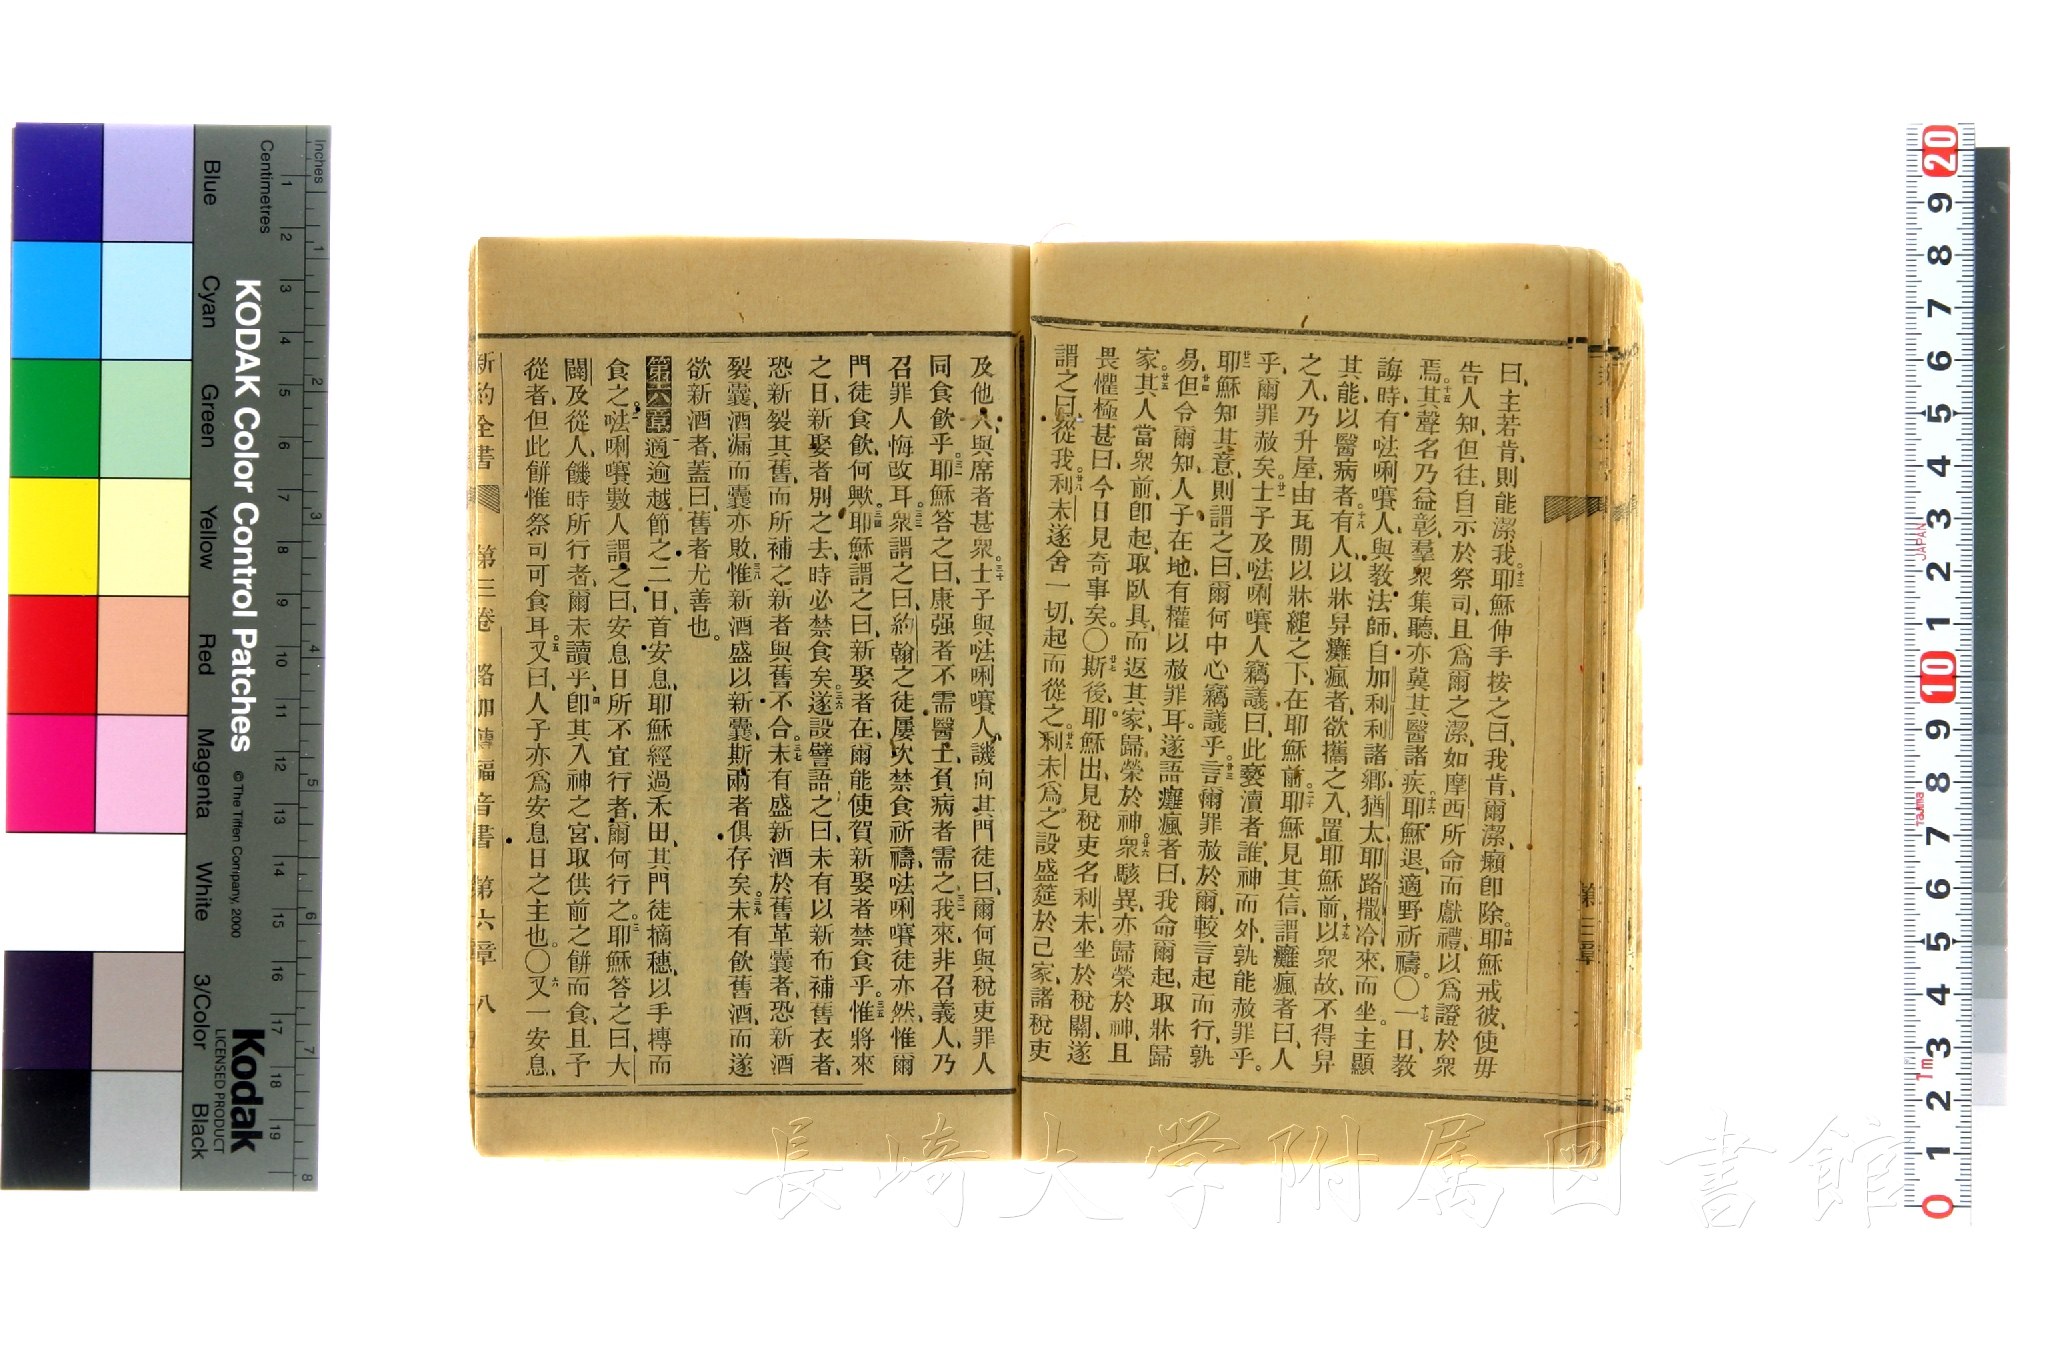 曰、主若肯、則能潔我、十三耶穌伸手按之曰、我肯、爾潔、癩卽除。十四耶穌戒彼、使毋
告人知、但往、自示於祭司、且爲爾之潔、如摩西所命而獻禮、以爲證於衆
焉。十五其聲名乃益彰、羣衆集聽、亦冀其醫諸疾、十六耶穌退適野祈禱。〇十七一日、教
誨時、有㳒唎㘔人、與教法師、自加利利諸鄉、猶太、耶路撒冷來而坐。主顯
其能、以醫病者、十八有人、以牀舁癱瘋者、欲攜之入、置耶穌前、十九以衆故、不得舁
之入、乃升屋、由瓦間以牀縋之下、在耶穌前、二十耶穌見其信、謂癱瘋者曰、人
乎、爾罪赦矣。廿一士子及㳒唎㘔人竊議曰、此褻瀆者誰、神而外、孰能赦罪乎。
廿二耶穌知其意、則謂之曰、爾何中心竊議乎。廿三言爾罪赦於爾、較言起而行、孰
易、廿四但令爾知、人子在地有權以赦罪耳。遂語癱瘋者曰、我命爾起、取牀歸
家、廿五其人當衆前卽起、取臥具、而返其家、歸榮於神。廿六衆駭異、亦歸榮於神、且
畏懼極甚、曰、今日見奇事矣。〇廿七斯後、耶穌出、見稅吏名利未、坐於稅關、遂
謂之曰、從我。廿八利未遂舍一切、起而從之。廿九利未爲之設盛筵於己家、諸稅吏
及他人、與席者甚衆。三十士子與㳒唎㘔人、譏向其門徒曰、爾何與稅吏罪人
同食飲乎。三一耶穌答之曰、康强者不需醫士、負病者需之、三二我來、非召義人、乃
召罪人悔改耳。三三衆謂之曰、約翰之徒、屢次禁食祈禱、㳒唎㘔徒亦然、惟爾
門徒食飲、何歟。三四耶穌謂之曰、新娶者在、爾能使賀新娶者禁食乎。三五惟將來
之日、新娶者別之去、時必禁食矣。三六遂設譬語之曰、未有以新布補舊衣者、
恐新裂其舊、而所補之新者與舊不合。三七未有盛新酒於舊革囊者、恐新酒
裂囊、酒漏而囊亦敗、三八惟新酒盛以新囊、斯兩者俱存矣。三九未有飲舊酒、而遂
欲新酒者、蓋曰、舊者尤善也。
第六章 一適逾越節之二日、首安息、耶穌經過禾田、其門徒摘穗、以手摶而
食之。二㳒唎㘔數人謂之曰、安息日所不宜行者、爾何行之。三耶穌答之曰、大
闢及從人、饑時所行者、爾未讀乎、四卽其入神之宮、取供前之餅而食、且予
從者、但此餅惟祭司可食耳。五又曰、人子亦爲安息日之主也。〇六又一安息、
新約全書 第三卷 路加傳福音書 第六章 八